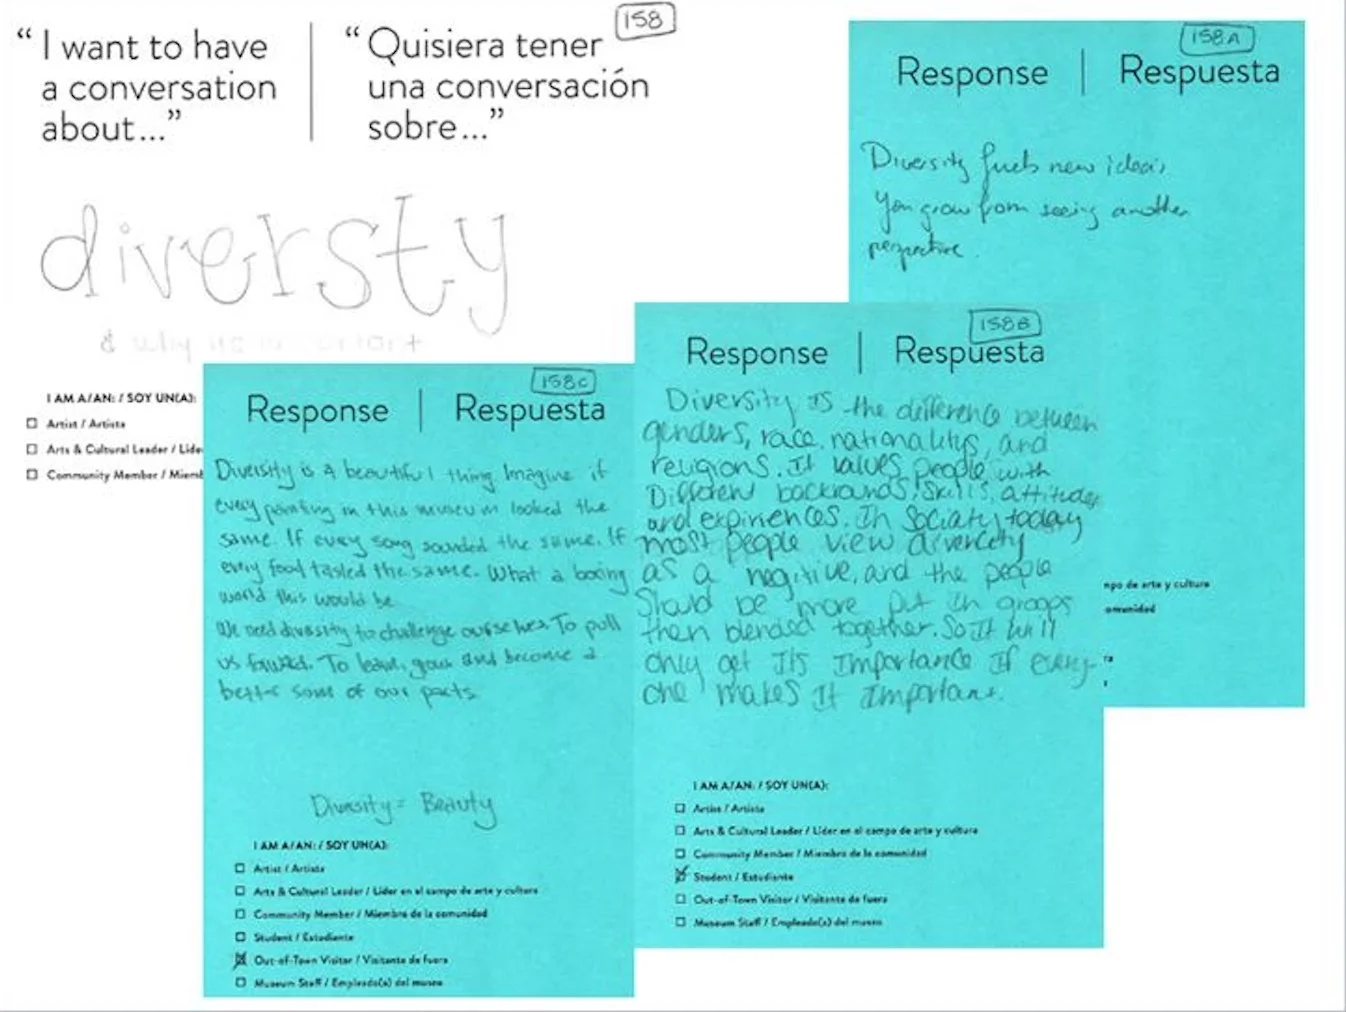 158
“I want to have
a conversation
about...”
“Quisiera tener
una conversación
sobre...”
diversty
& why its important
I AM A/AN: / SOY UN(A):
Artist / Artista
Arts & Cultural Leader / Líde
Community Member / Miemb
158A
Response | Respuesta
Diversity fuels new ideas,
You grow from seeing another
perspective.
npo de arte y cultura
omunidad
158B
Response | Respuesta
Diversity is the difference between
genders, race, nationalitys, and
religions. It values people with
Different backrounds, skills, attitudes
and expiriences. In Sociaty today
most people view divercity
as a negitive, and the people
Should be more put in groops
then blended together. So It will
only get Its Importance If every-
one makes It Important.
I AM A/AN: / SOY UN(A):
Artist / Artista
Arts & Cultural Leader / Líder en el campo de arte y cultura
Community Member / Miembro de la comunidad
Student / Estudiante
Out-of-Town Visitor / Visitante de fuera
Museum Staff / Empleado(a) del museo
158C
Response | Respuesta
Diversity is A beautiful thing. Imagine if
every painting in this museum looked the
same. If every song sounded the same. If
every food tasted the same. What a boring
world this would be.
We need diversity to challenge ourselves. To pull
us forward. To learn, grow and become a
better some of our parts.
Diversity = Beauty
I AM A/AN: / SOY UN(A):
Artist / Artista
Arts & Cultural Leader / Líder en el campo de arte y cultura
Community Member / Miembro de la comunidad
Student / Estudiante
Out-of-Town Visitor / Visitante de fuera
Museum Staff / Empleado(a) del museo